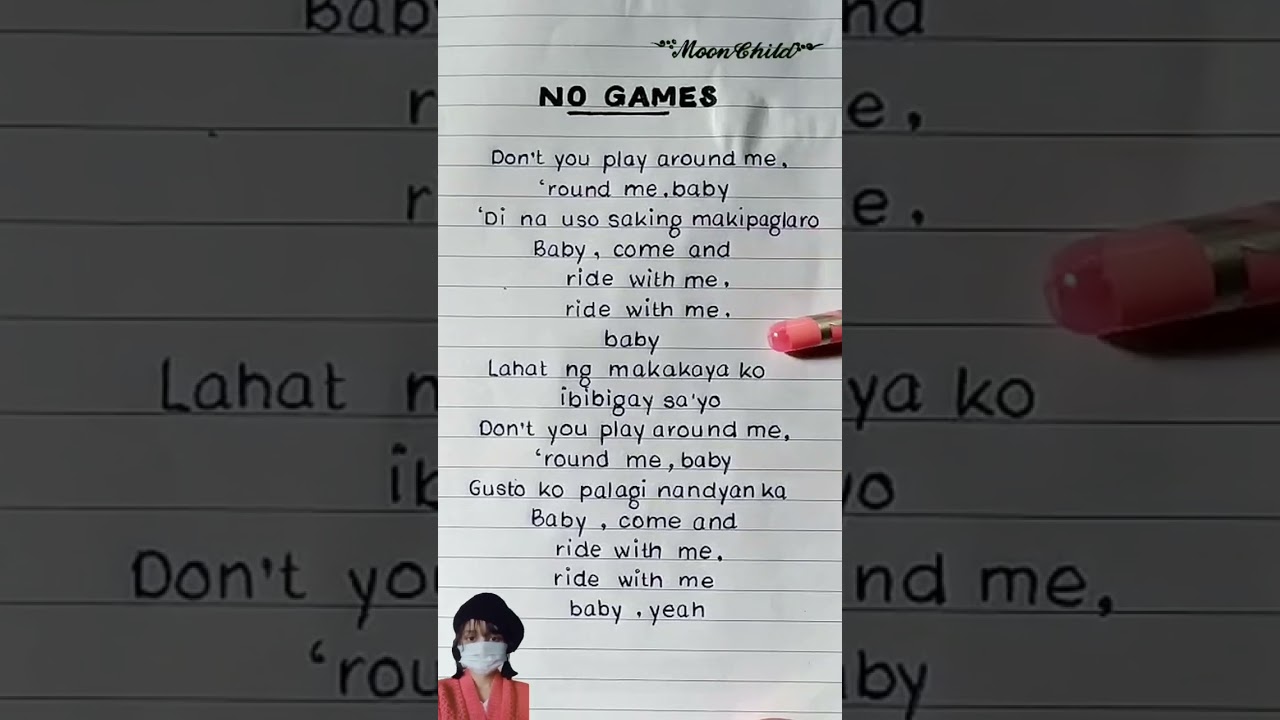 MoonChild
NO GAMES
Don't you play around me,
'round me, baby
'Di na uso saking makipaglaro
Baby, come and
ride with me,
ride with me,
baby
Lahat ng makakaya ko
ibibigay sa'yo
Don't you play around me,
'round me, baby
Gusto ko palagi nandyan ka
Baby, come and
ride with me,
ride with me
baby, yeah